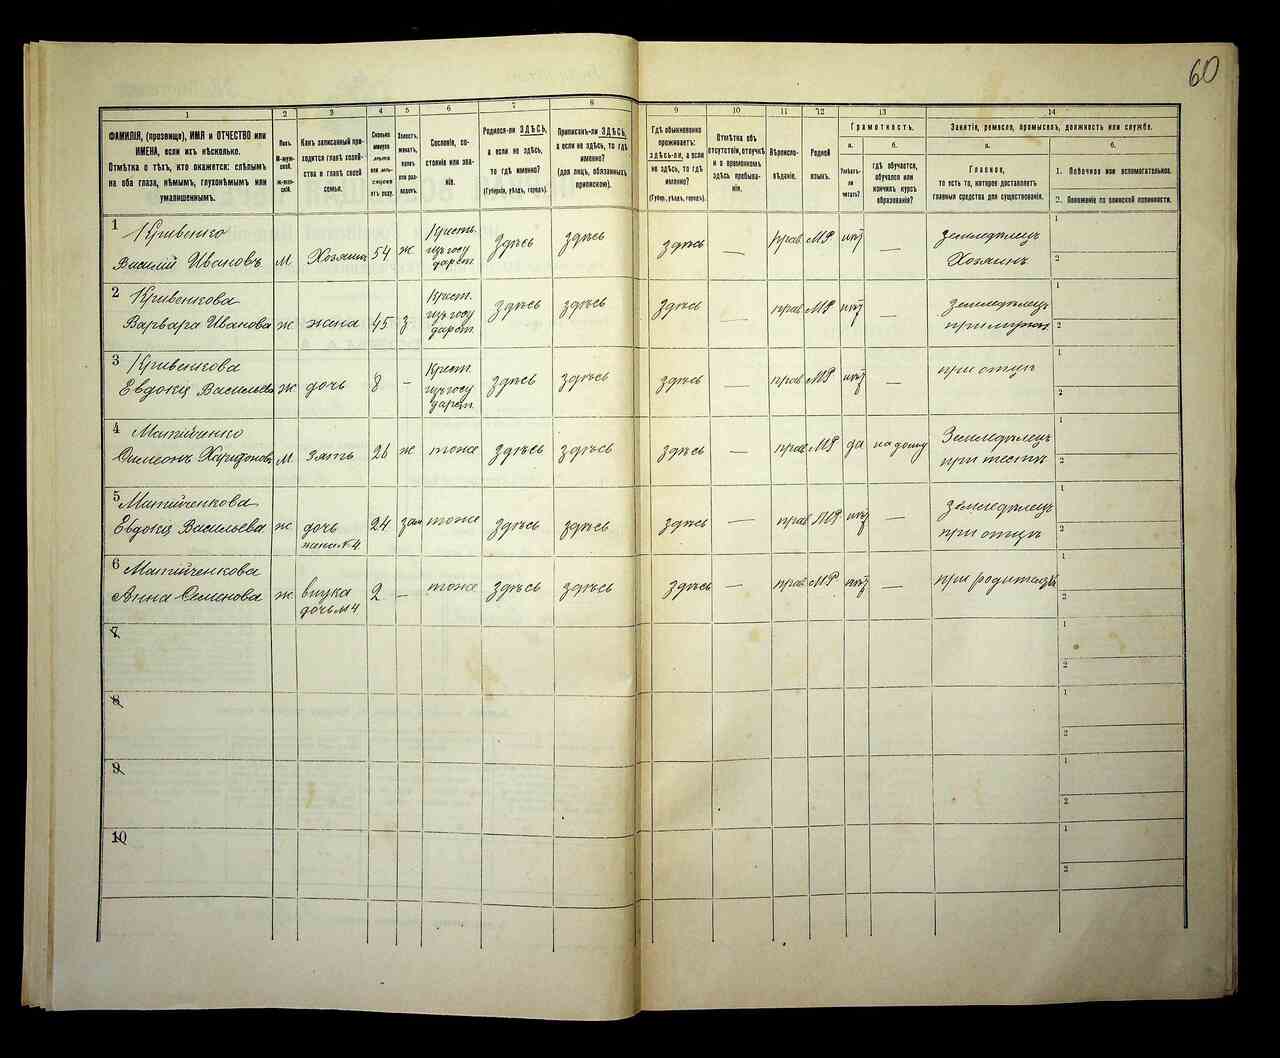 60
1
2
3
4
5
6
7
8
9
10
11
12
13
14
ФАМИЛІЯ, (прозвище), ИМЯ и ОТЧЕСТВО или
ИМЕНА, если ихъ нѣсколько.
Отмѣтка о тѣхъ, кто окажется: слѣпымъ
на оба глаза, нѣмымъ, глухонѣмымъ или
умалишеннымъ.
Полъ.
М-муж-
ской.
Ж-жен-
скій.
Какъ записанный при-
ходится главѣ хозяй-
ства и главѣ своей
семьи.
Сколько
минуло
лѣтъ
Холостъ,
женатъ,
вдовъ
или раз-
веденъ.
Сословіе, со-
стояніе или зва-
ніе.
Родился-ли ЗДѢСЬ,
а если не здѣсь,
то гдѣ именно?
(Губернія, уѣздъ, городъ).
Приписанъ-ли ЗДѢСЬ,
а если не здѣсь, то гдѣ
именно?
(для лицъ, обязанныхъ
припискою).
Гдѣ обыкновенно
проживаетъ:
здѣсь-ли, а если
не здѣсь, то гдѣ
именно?
(Губер., уѣздъ, городъ).
Отмѣтка объ
отсутствіи, отлучкѣ
и о временномъ
здѣсь пребыва-
ніи.
Вѣроиспо-
вѣданіе.
Родной
языкъ.
Грамотность.
а.
Умѣетъ-
ли
читать?
б.
гдѣ обучается,
обучался или
кончилъ курсъ
образованія?
Занятіе, ремесло, промыселъ, должность или служба.
а.
Главное,
то есть то, которое доставляетъ
главныя средства для существованія.
б.
1. Побочное или вспомогательное.
2. Положеніе по воинской повинности.
1 Кривенко
Василій Ивановъ М Хозяинъ 54 ж Крестъ. здѣсь здѣсь здѣсь — прав. МР — Земледѣлецъ
Хозяинъ
1
2
2 Кривенкова
Варвара Иванова ж жена 45 з Крест. здѣсь здѣсь здѣсь — прав МР — земледѣлецъ
1
2
3 Кривенкова
Евдокія Васильева ж дочь 8 — Крест. здѣсь здѣсь здѣсь — прав МР — при отцѣ
1
2
4 Матійченко
Симеонъ Харитоновъ М зять 26 ж тоже здѣсь здѣсь здѣсь — прав МР да на дому Земледѣлецъ
при тестѣ
1
2
5 Матійченкова
Евдокія Васильева ж дочь 24 зам тоже здѣсь здѣсь здѣсь — прав МР — земледѣлецъ
жена №4 при отцѣ
1
2
6 Матійченкова
Анна Семенова ж внучка 2 — тоже здѣсь здѣсь здѣсь — прав МР — при родителяхъ
дочь №4
1
2
7
1
2
8
1
2
9
1
2
10
1
2